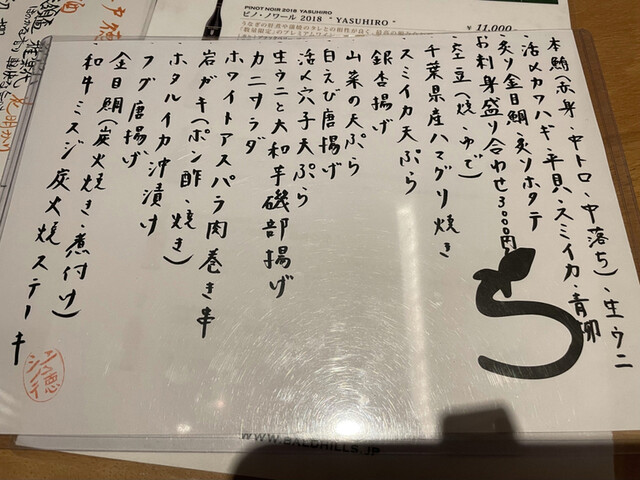 PINOT NOIR 2018 YASUHIRO
ピノ・ノワール 2018 " YASUHIRO "
¥ 11,000-
本鮪(赤身・中トロ・中落ち)・生ウニ
・活〆カワハギ・平貝・スミイカ・青柳
・炙り金目鯛・炙りホタテ
お刺身盛り合わせ3000円
・空豆(焼・ゆで)
・千葉県産ハマグリ焼き
・スミイカ天ぷら
・銀杏揚げ
・山菜の天ぷら
・白えび唐揚げ
・活〆穴子天ぷら
・生ウニと大和芋磯部揚げ
・カニサラダ
・ホワイトアスパラ肉巻き串
・岩ガキ(ポン酢・焼き)
・ホタルイカ沖漬け
・フグ唐揚げ
・金目鯛(炭火焼き・煮付け)
・和牛ミスジ炭火焼ステーキ
ち
WWW.BALDHILLS.JP